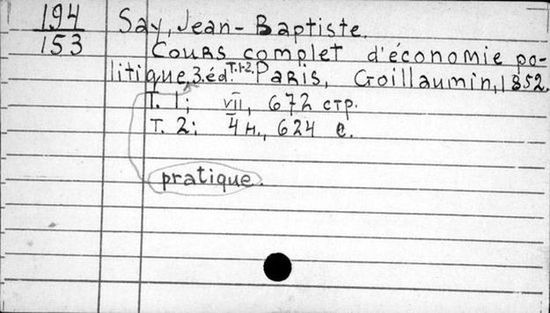 194
153
Say, Jean-Baptiste.
Cours complet d'économie po-
litique, 3.éd T.1-2. Paris, Goillaumin, 1852.
T. 1: VII, 672 стр.
T. 2: 4 н., 624 с.
pratique.